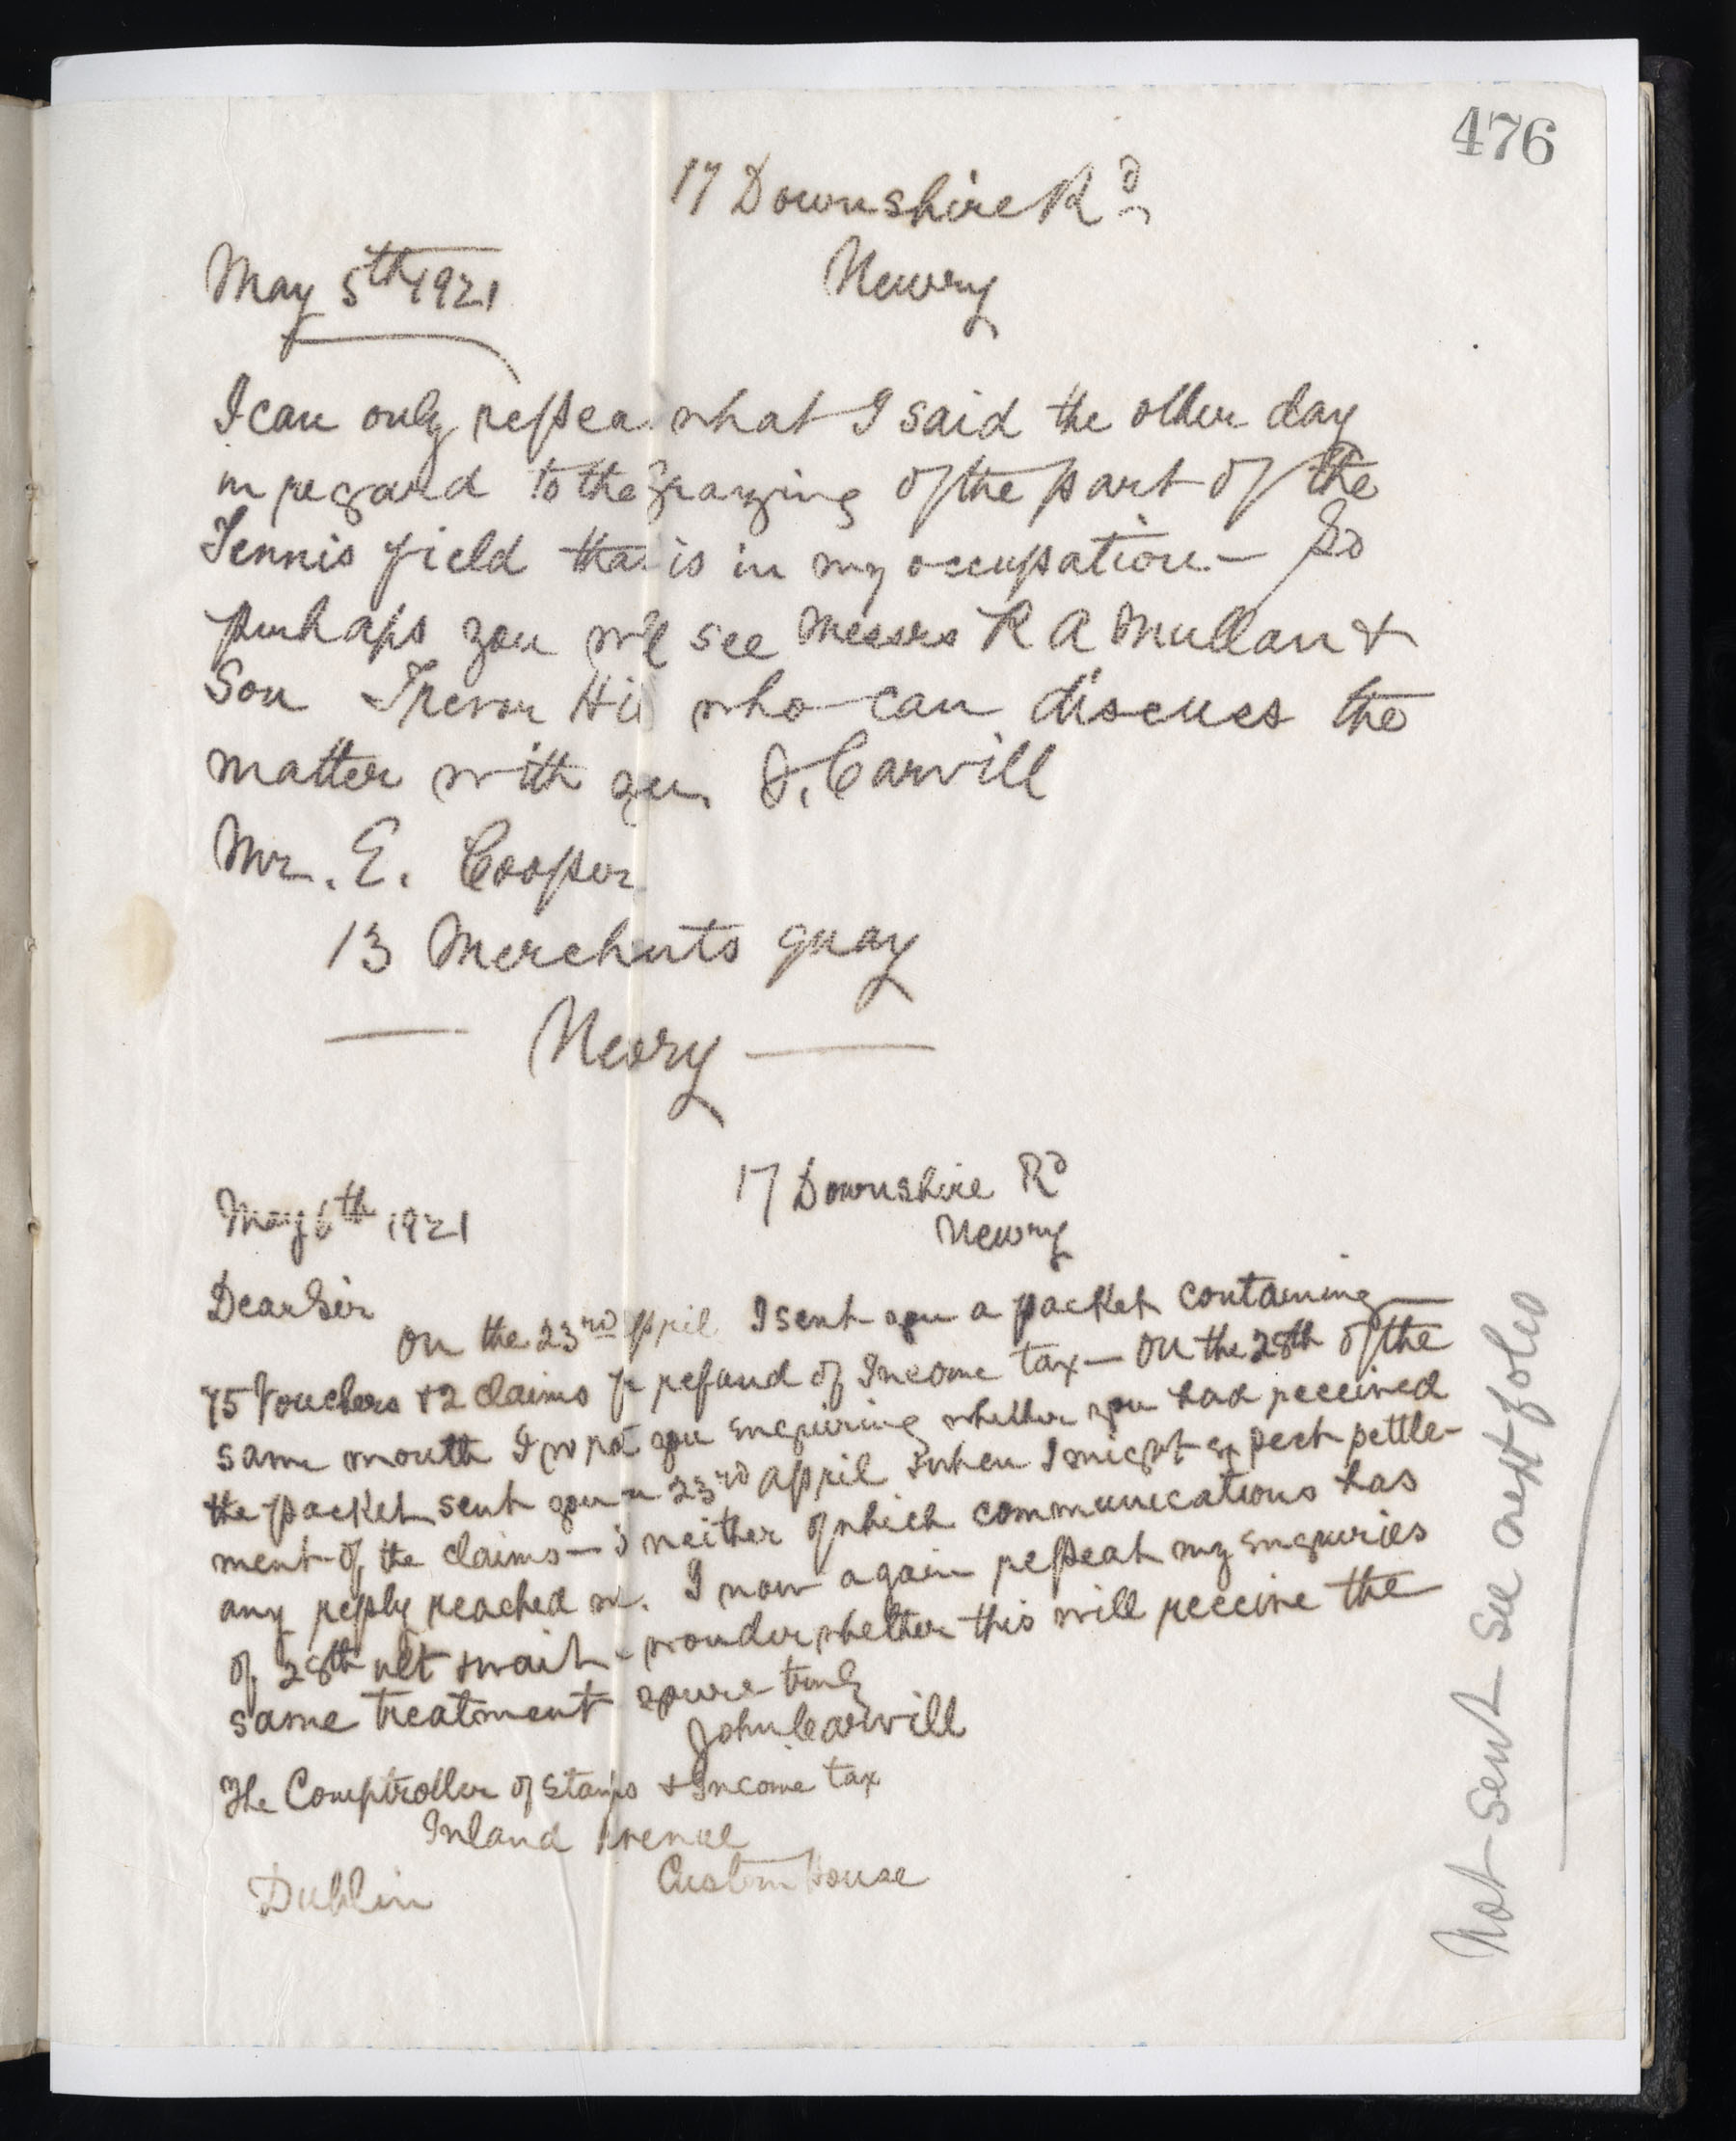 476
17 Downshire Rd
May 5th 1921
Newry
I can only repea what I said the other day
in regard to the grazing of the part of the
Tennis field tha is in my occupation — So
perhaps you will see Messrs R A Mullan &
Son Trevor Hill who can discuss the
matter with you J. Carvill
Mr. E. Cooper
13 Merchnts quay
— Newry —
17 Downshire Rd
May 6th 1921
Newry
Dear Sir
On the 23rd April I sent you a packet containing
75 Vouchers & 2 claims for refund of Income tax — On the 28th of the
same month I wrote you enquiring whether you had received
the packet sent you on 23rd April & when I might expect settle-
ment of the claims — to neither of which communications has
any reply reached me. I now again repeat my enquiries
of 28th ult & wait & wonder whether this will receive the
same treatment yours truly
John Carvill
The Comptroller of Stamps & Income tax
Inland Revenue
Custom House
Dublin
Not sent see next folio